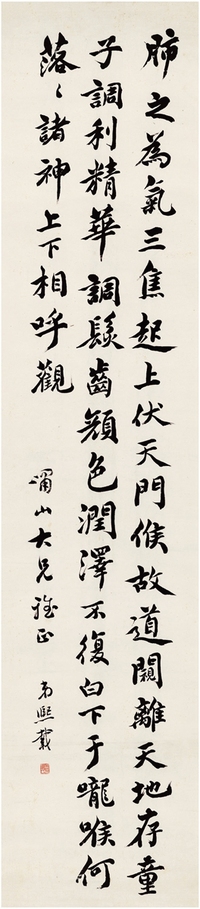 肺之為氣三焦起上伏天門候故道闚離天地存童
子調利精華調髮齒顏色潤澤不復白下于嚨喉何
落〻諸神上下相呼觀
澗山大兄雅正 弟熙載